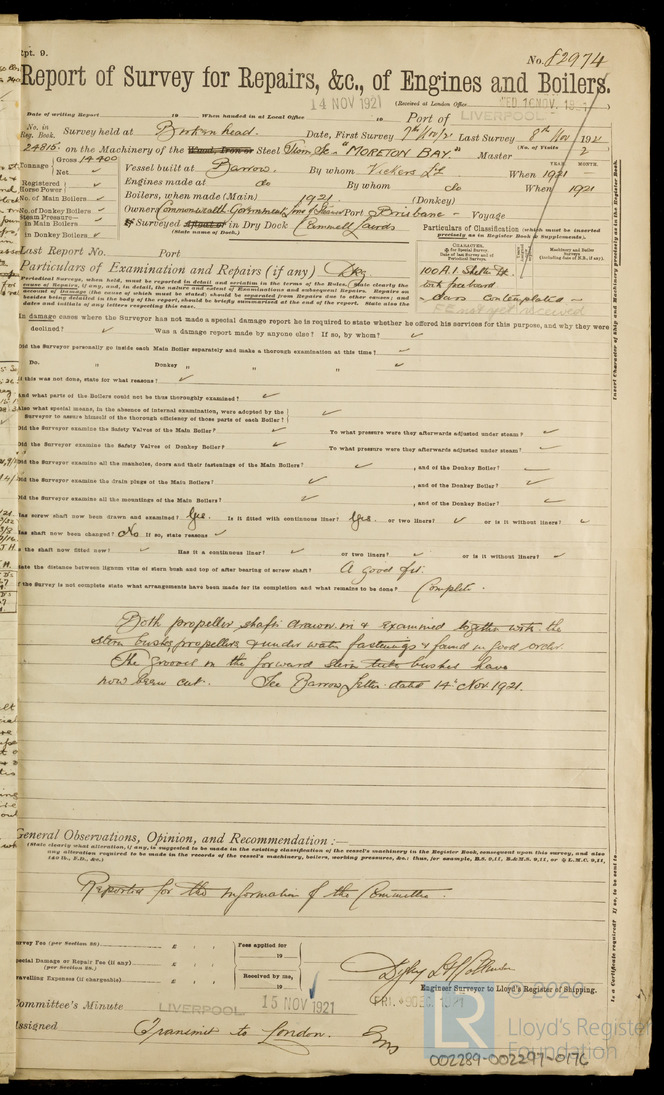 Rpt. 9.
No. 82974
Report of Survey for Repairs, &c., of Engines and Boilers.
14 NOV 1921
(Received at London Office WED. 16 NOV. 1921
Date of writing Report 19 When handed in at Local Office 19 Port of LIVERPOOL
No. in Reg. Book. Survey held at Birkenhead. Date, First Survey 7th Nov/21 Last Survey 8th Nov 1921
24815 on the Machinery of the Wood, Iron or Steel "MORETON BAY." Master (No. of Visits 2
Tonnage Gross 14400
Net
Vessel built at Barrow. By whom Vickers Ld When 1921
YEAR. MONTH.
Registered Horse Power
Engines made at do By whom do When 1921
No. of Main Boilers
Boilers, when made (Main) 1921 (Donkey)
No. of Donkey Boilers
Owners Commonwealth Government Line of Port Brisbane - Voyage
Steam Pressure in Main Boilers
in Donkey Boilers
If Surveyed afloat or in Dry Dock Cammell Lairds
(State name of Dock.)
Particulars of Classification (which must be inserted precisely as in Register Book & Supplements).
Last Report No. Port
Particulars of Examination and Repairs (if any) Dkg.
100 A.1. Shelter Dk.
with freeboard
Class Contemplated
FE not yet received
Periodical Surveys, when held, must be reported in detail and seriatim in the terms of the Rules. State clearly the
cause of Repairs, if any, and, in detail, the nature and extent of Examinations and subsequent Repairs. Repairs on
account of Damage (the cause of which must be stated) should be separated from Repairs due to other causes; and
besides being detailed in the body of the report, should be briefly summarized at the end of the report. State also the
dates and initials of any letters respecting this case.
In damage cases where the Surveyor has not made a special damage report he is required to state whether he offered his services for this purpose, and why they were
declined? Was a damage report made by anyone else? If so, by whom?
Did the Surveyor personally go inside each Main Boiler separately and make a thorough examination at this time?
Do. " Donkey " " "
If this was not done, state for what reasons?
And what parts of the Boilers could not be thus thoroughly examined?
Also what special means, in the absence of internal examination, were adopted by the
Surveyor to assure himself of the thorough efficiency of those parts of each Boiler?
Did the Surveyor examine the Safety Valves of the Main Boiler? To what pressure were they afterwards adjusted under steam?
Did the Surveyor examine the Safety Valves of Donkey Boiler? To what pressure were they afterwards adjusted under steam?
Did the Surveyor examine all the manholes, doors and their fastenings of the Main Boilers? , and of the Donkey Boiler?
Did the Surveyor examine the drain plugs of the Main Boilers? , and of the Donkey Boiler?
Did the Surveyor examine all the mountings of the Main Boilers? , and of the Donkey Boiler?
Has screw shaft now been drawn and examined? Yes. Is it fitted with continuous liner? Yes. or two liners? or is it without liners?
Has shaft now been changed? No If so, state reasons
Is the shaft now fitted new? Has it a continuous liner? or two liners? or is it without liners?
State the distance between lignum vitæ of stern bush and top of after bearing of screw shaft? A good fit.
If the Survey is not complete state what arrangements have been made for its completion and what remains to be done? Complete.
Both propeller shafts drawn in & examined together with the
stern bushes, propellers & under water fastenings & found in good order.
The grooves in the forward stern tube bushes have
now been cut. See Barrow Letter dated 14th Nov. 1921.
General Observations, Opinion, and Recommendation :—
(State clearly what alteration, if any, is suggested to be made in the existing classification of the vessel's machinery in the Register Book, consequent upon this survey, and also
any alteration required to be made in the records of the vessel's machinery, boilers, working pressures, &c.: thus, for example, B.S. 9,11, B.&M.S. 9,11, or L.M.C. 9,11,
140 lb., F.D., &c.)
Reported for the information of the Committee.
Survey Fee (per Section 28) £ : :
Fees applied for
19
Special Damage or Repair Fee (if any) £ : :
(per Section 28.)
Received by me,
19
Travelling Expenses (if chargeable) £ : :
Engineer Surveyor to Lloyd's Register of Shipping.
Committee's Minute LIVERPOOL 15 NOV 1921
Assigned Transmit to London.
© 2020
LR
Lloyd's Register
Foundation
002289-002297-0176